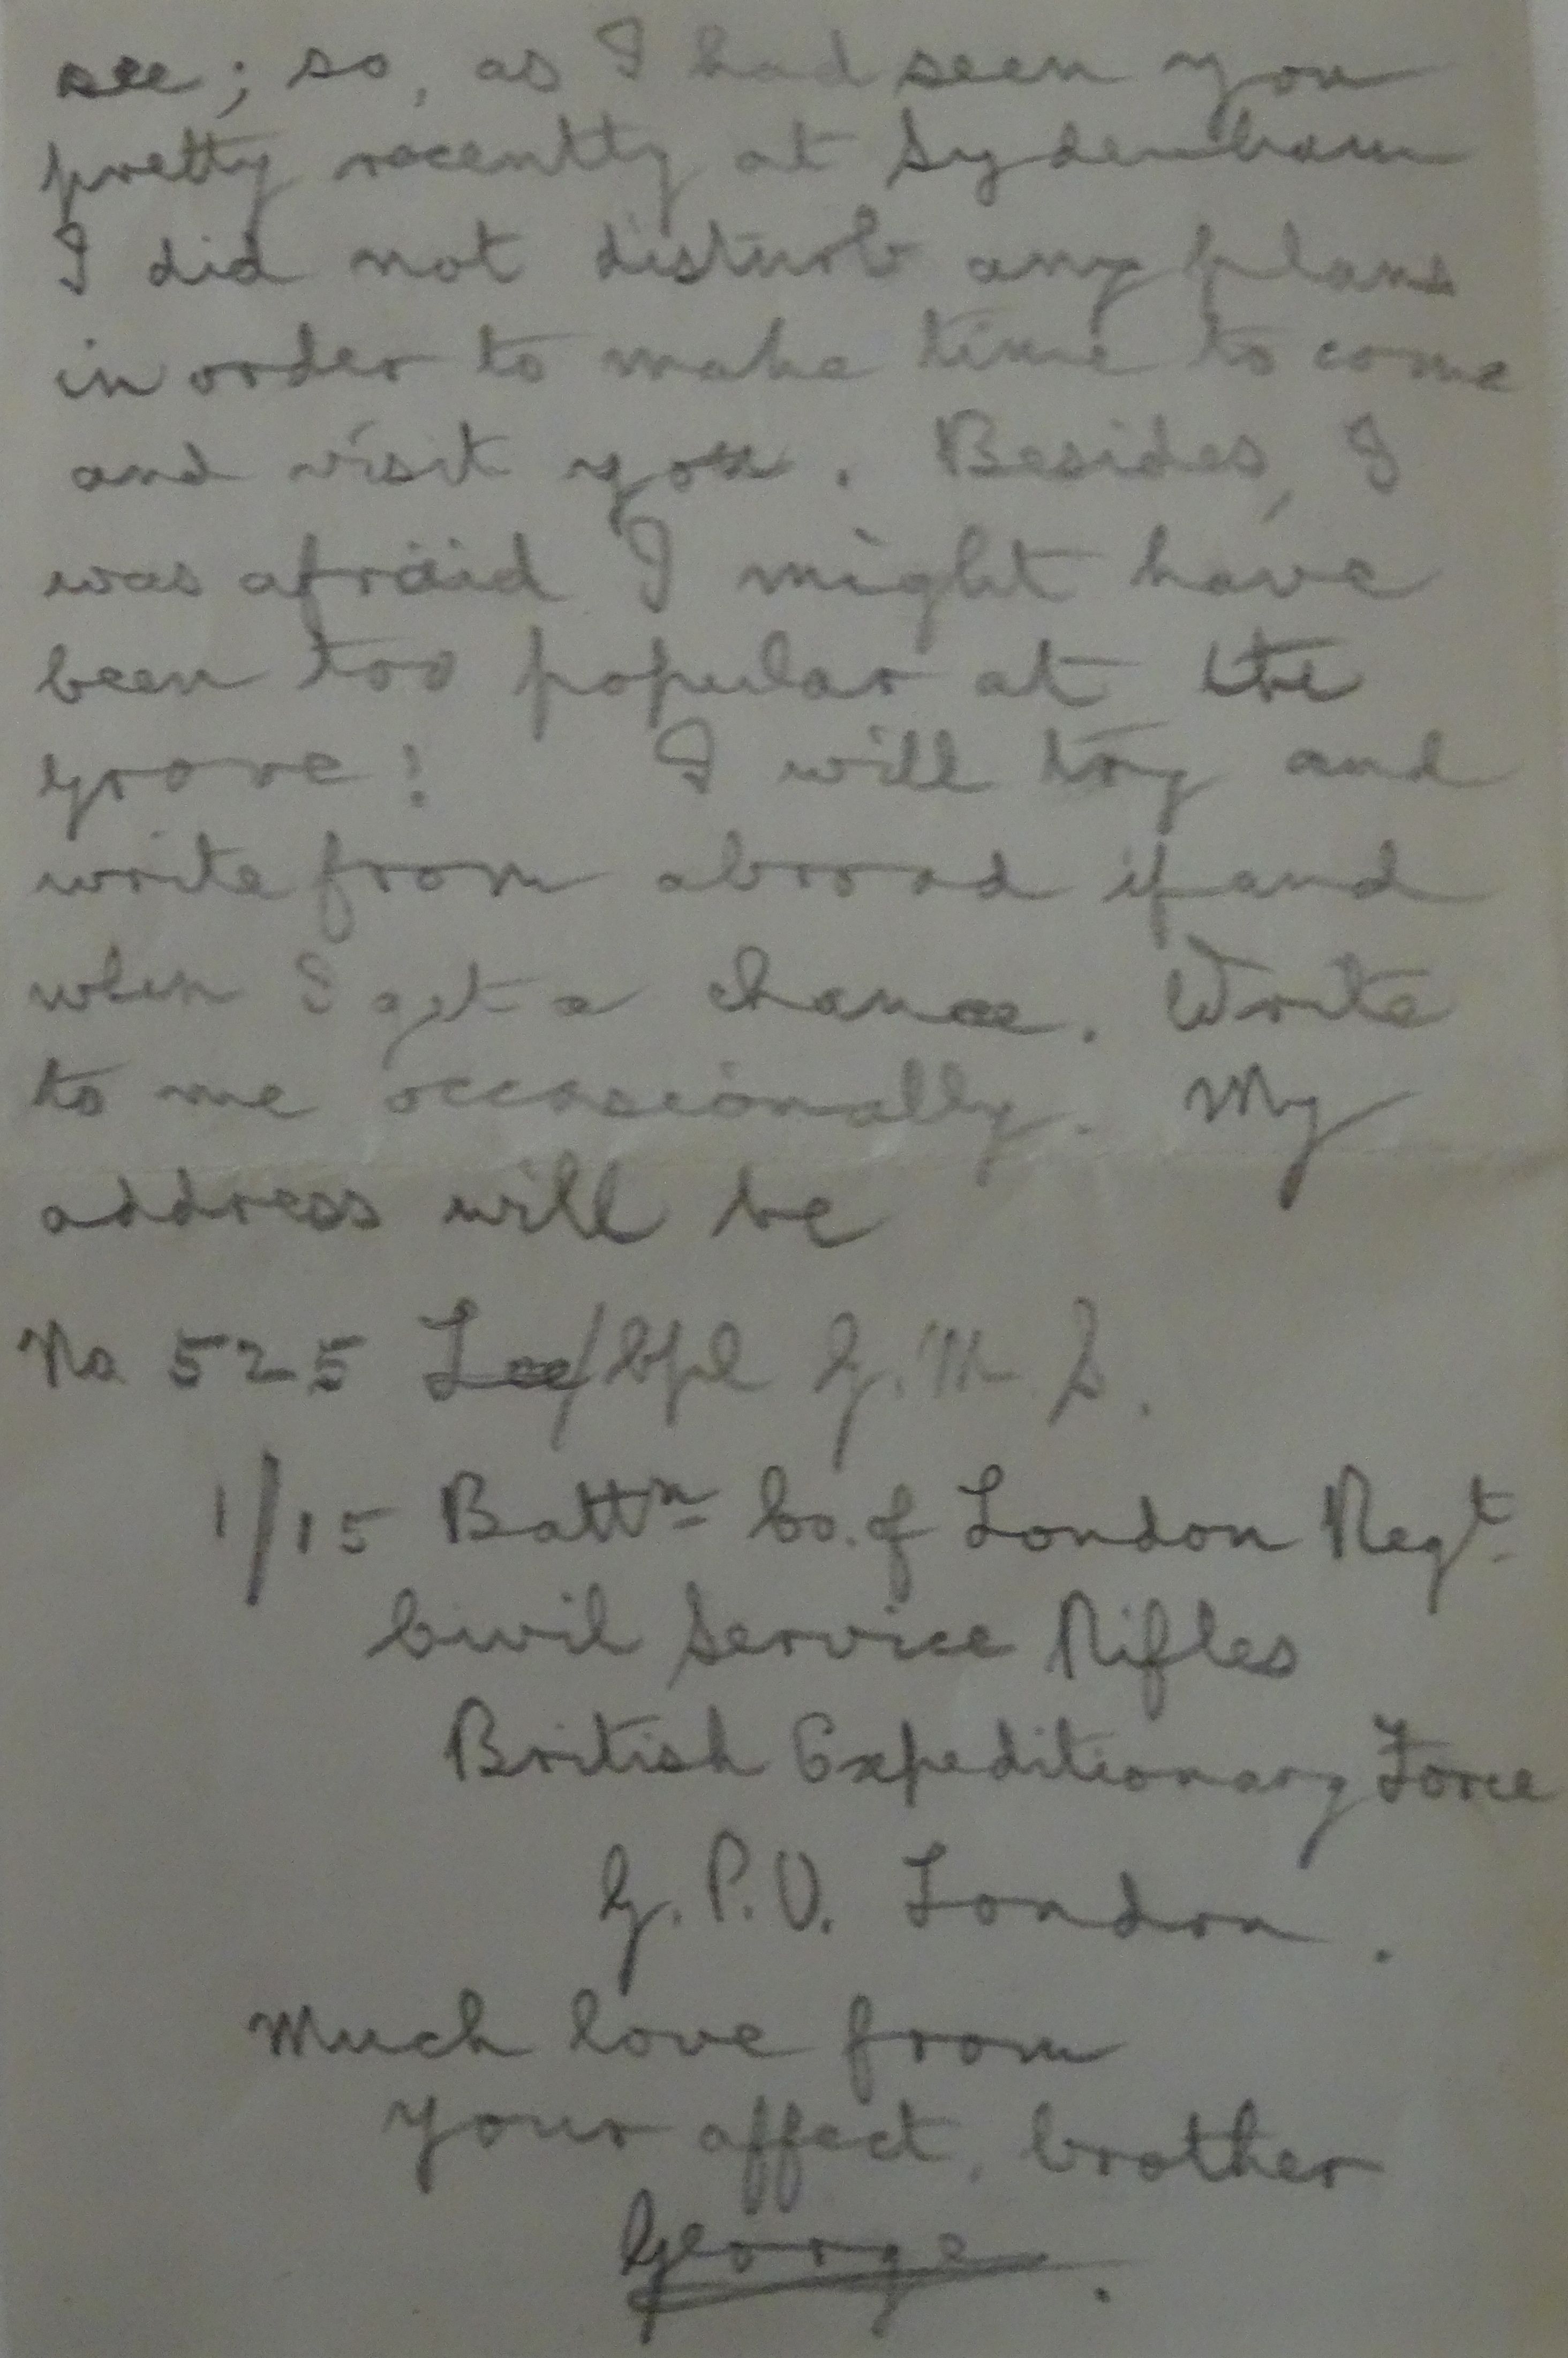 see; so, as I had seen you
pretty recently at Sydenham
I did not disturb any plans
in order to make time to come
and visit you. Besides, I
was afraid I might have
been too popular at the
grove! I will try and
write from abroad if and
when I get a chance. Write
to me occasionally. My
address will be
No 525 Lce/Cpl G. M. D.
1/15 Battn Co. of London Regt.
Civil Service Rifles
British Expeditionary Force
G.P.O. London.
Much love from
your affect. brother
George.